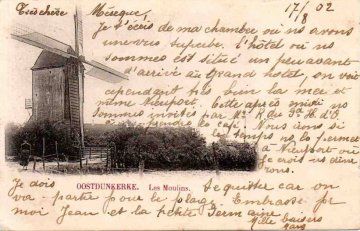 Très chère Mérèque, 17/8 02
Je t'écris de ma chambre où ns avons
une vue superbe. L'hôtel où ns
sommes est situé un peu avant
d'arrivé au Grand hotel, on voit
cependant très bien la mer et
même Nieuport. Cette après midi ns
sommes invités par Mr R. du Gd H. d'O.
prendre le café. Nous irons si
le temps ns le permet
à Nieuport où
je crois ns dîne
rons.
OOSTDUNKERKE. Les Moulins.
Je dois te quitter car on
va partir pour la plage. Embrasse pr
moi Jean et la petite Germaine
Mille baisers